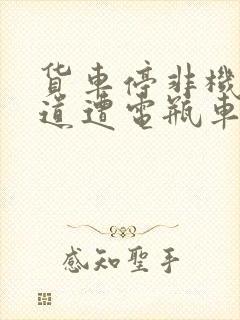 货车停非機
道遭電瓶車
感知聖手